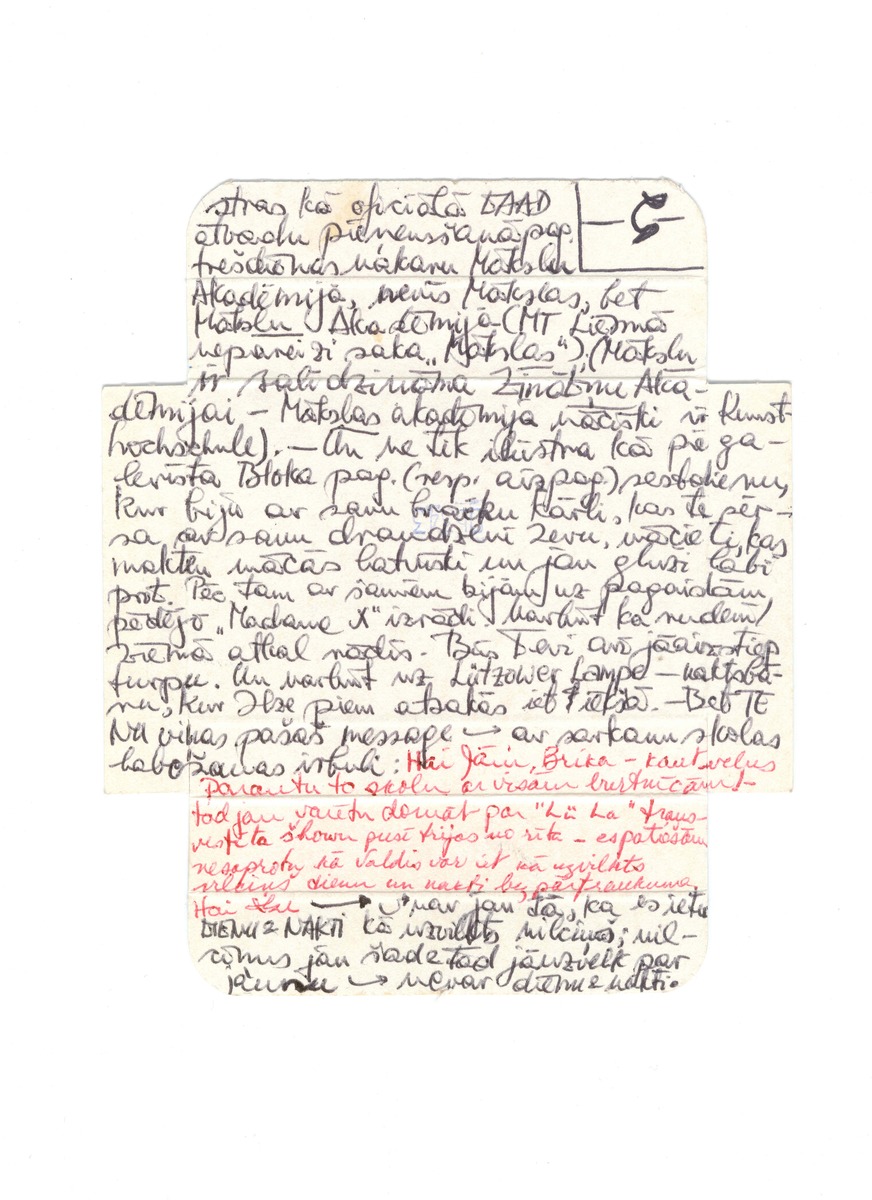 stras kā oficiālā DAAD
atvadu pieņemšanā pag.
trešdienas vakaru Mākslu
Akadēmijā, nevis Mākslas, bet
Mākslu Akadēmijā (MT Liesmā
nepareizi saka „Mākslas"); (Mākslu
ir salīdzināma Zinātņu Akā-
dēmijai – Mākslas akadēmija vāciski ir Kunst-
hochschule). – Un ne tik šķistra kā pie ga-
lerista Bloka pag. (resp. aizpag.) sestdienu,
kur biju ar savu bracku Kārli, kas te pēr-
sa ar savu draudzeni Zeru, vācieti, kas
makten mācās latviski un jau gluži labi
prot. Pēc tam ar šamiem bijām uz pagaidām
pēdējo „Madame X" izrādi. Varbūt ka rudenī/
ziemā atkal rādīs. Būs Tevi arī jāaizstiep
turpu. Un varbūt uz Lützower Lampe – naktsbā-
ru, kur Ilze piem atsakās iet iekšā. – Bet TE
NU viņas pašas message → ar sarkanu skolas
labošanas irbuli: Hai Jāni, Ērika – kaut velns
parautu to skolu ar visām burtnīcām! –
tad jau varētu domāt par "Lū La" trans-
vestīta šhowu pusī trijos no rīta – es patiešām
nesaprotu kā Valdis var iet kā uzvilkts
vilciņš dienu un nakti bez pārtraukuma.
Hai → nav jau tā, ka es ietu
DIENU & NAKTI kā uzvilkts vilciņš; vil-
ciņus jau šad & tad jāuzvelk par
jaunu → nevar dienu & nakti.